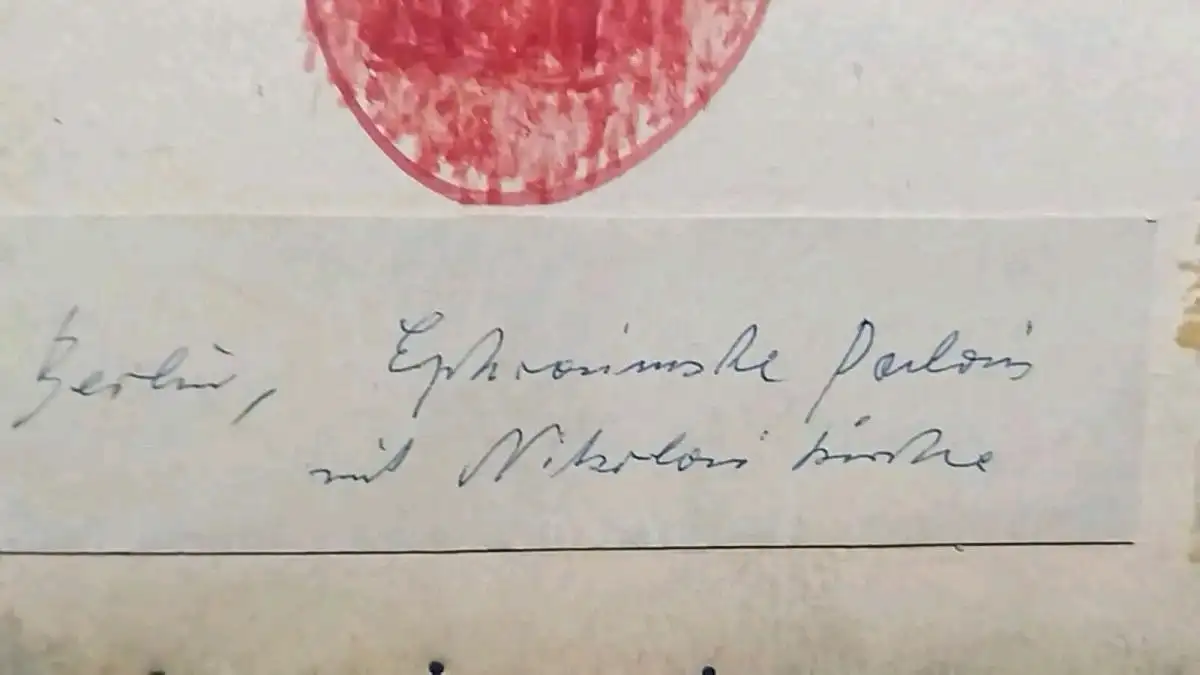 Berlin, Ephraimsche Palais
mit Nikolai Kirche